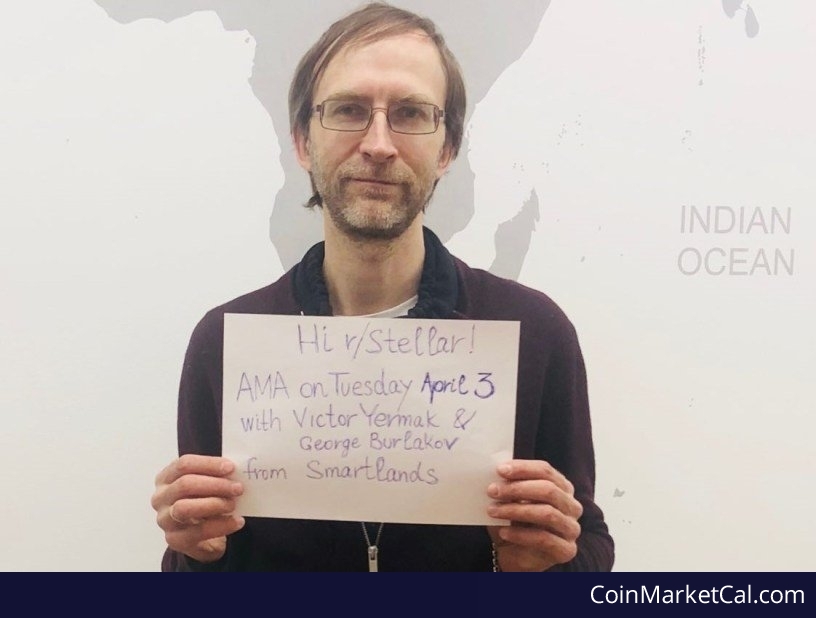 INDIAN
OCEAN
Hi r/Stellar!
AMA on Tuesday April 3
with Victor Yermak &
George Burlakov
from Smartlands
CoinMarketCal.com